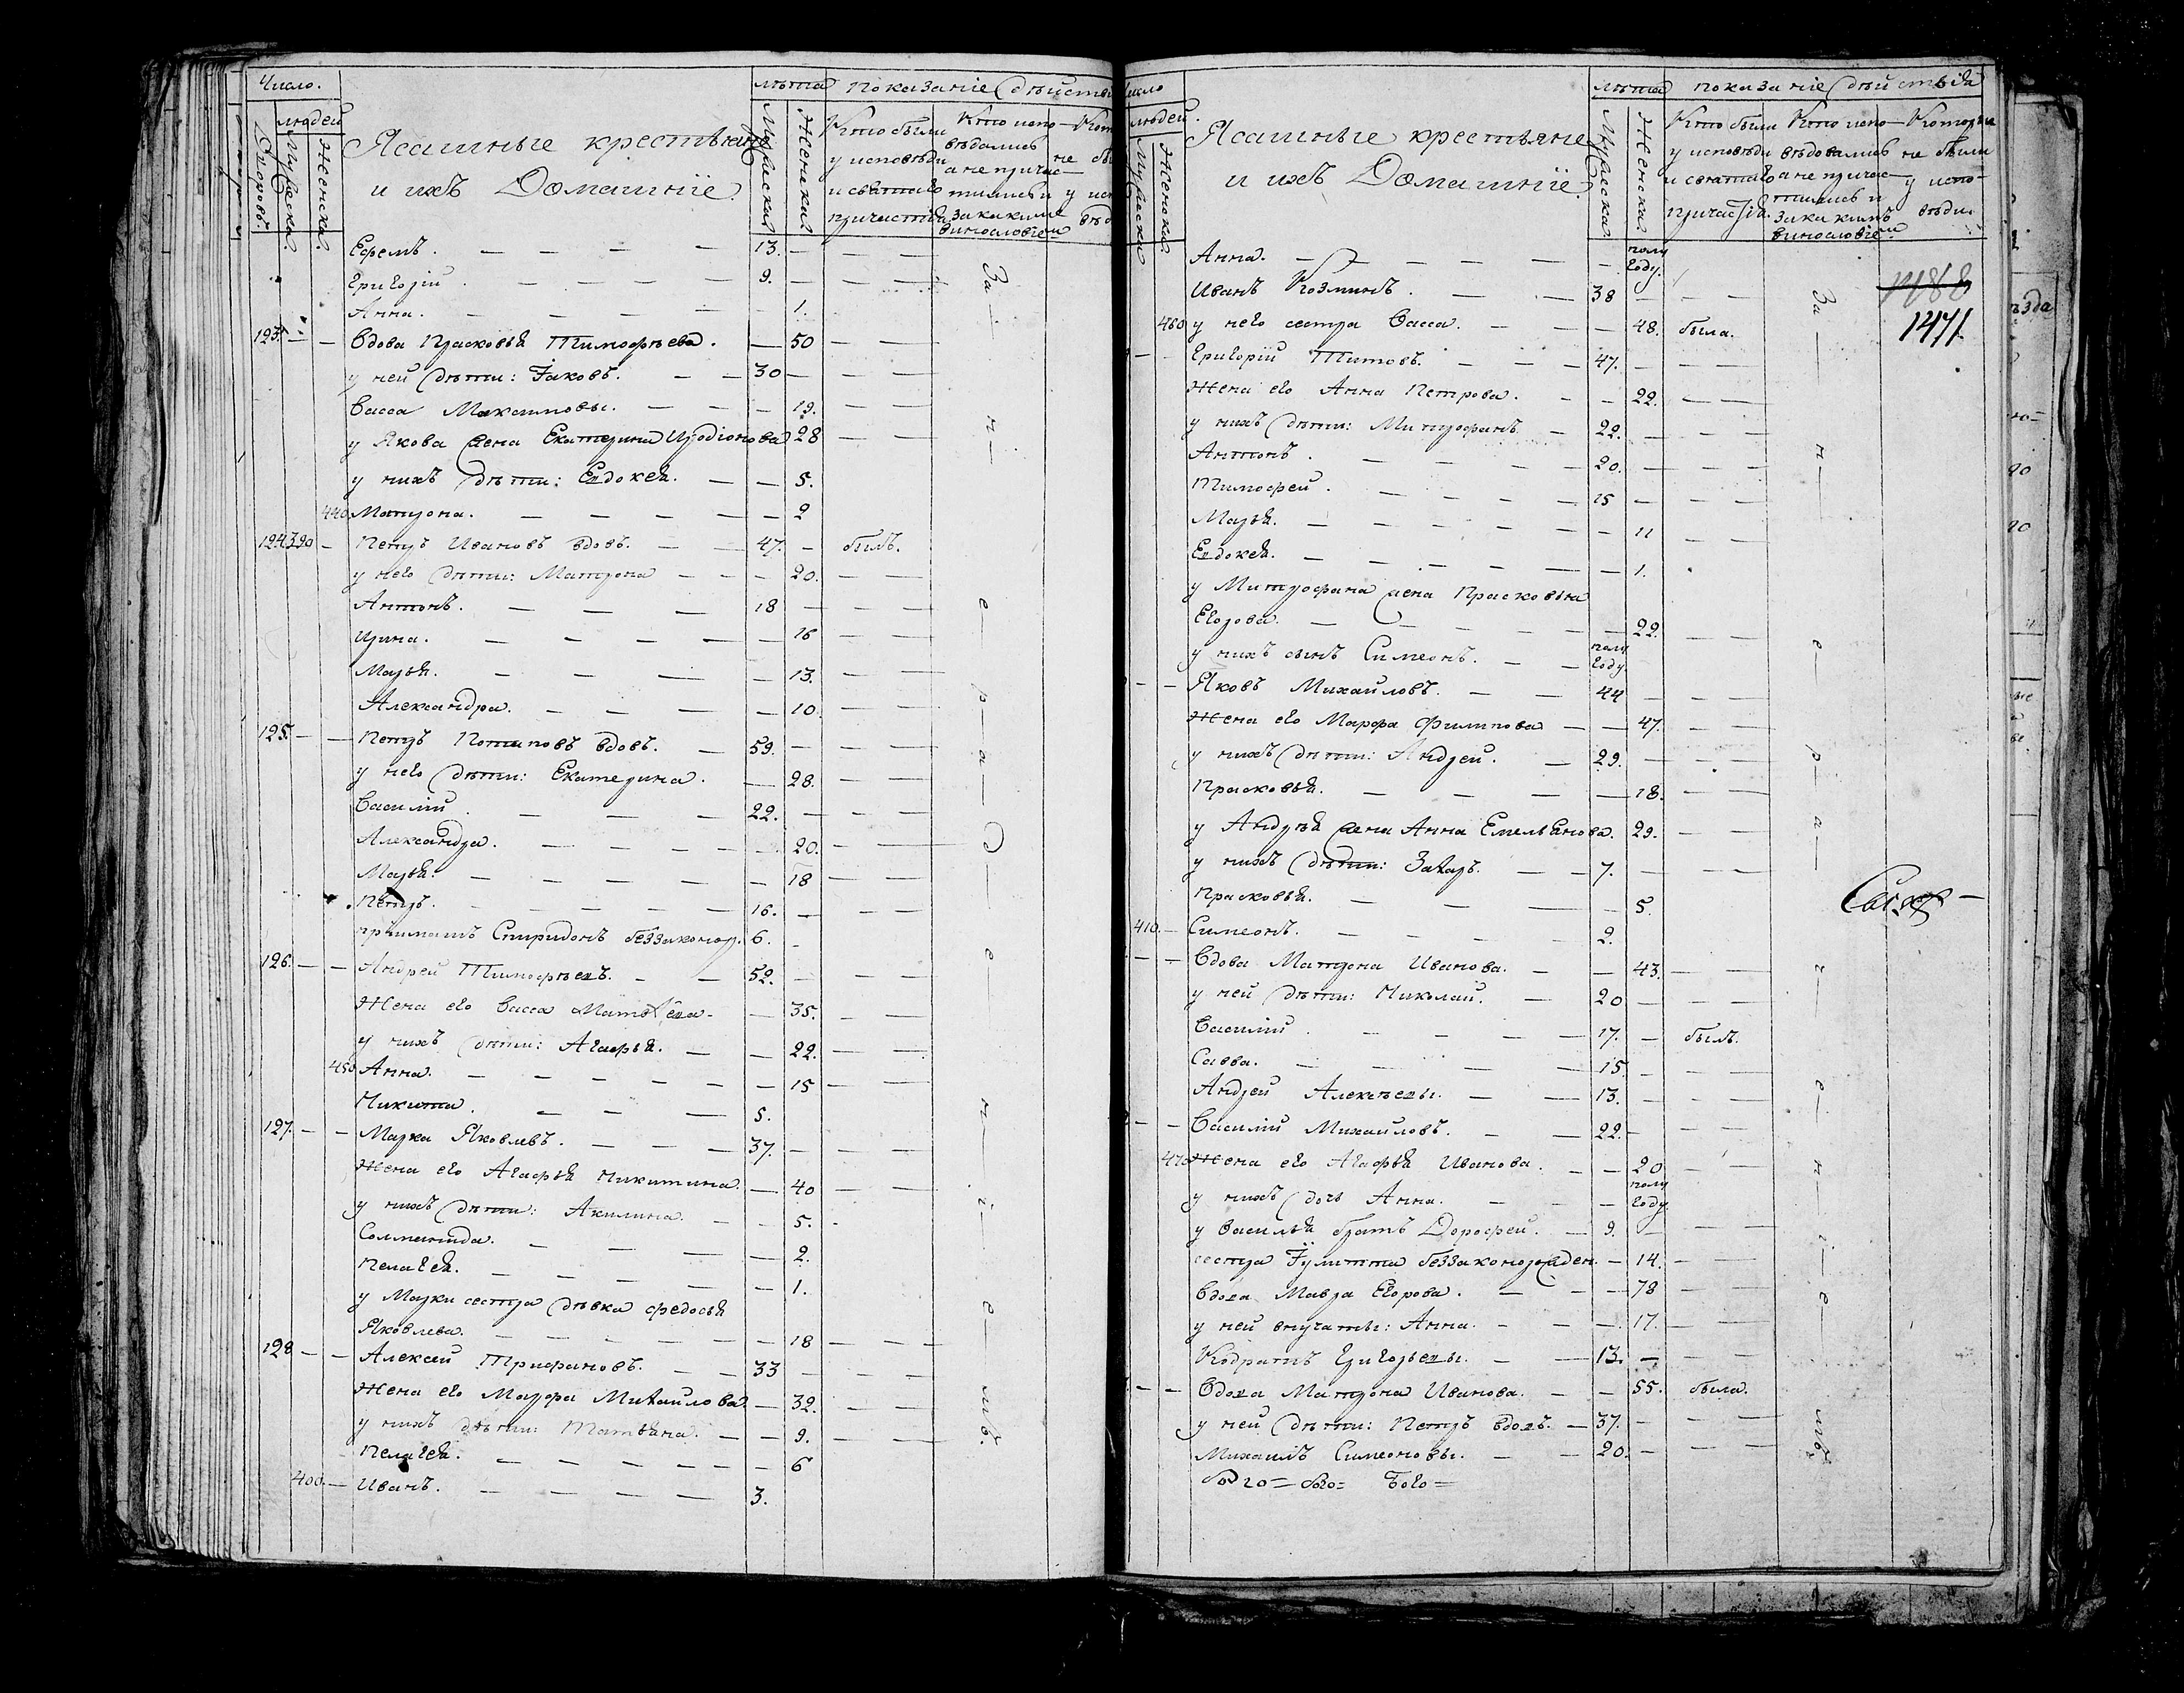 Число.
людей
Дворовъ.
Мужеска
Женска.
Ясашные крестьяне
и ихъ Домашнiе.
лѣта
Мужеска
Женска
показанiе дѣйств
Кто были
у исповѣди
и святаго
причастiя
Кто испо-
вѣдались
а не причас-
тились и
за какимъ
винословiем
Кот
не бы
у исп
вѣд
Ефремъ. 13.
Григорiй. 9.
Анна. 1.
123. Вдова Прасковья Тимофѣева. 50
у ней дѣти: Iаковъ. 30
Васса Максимовы. 19.
у Якова жена Екатерина Иродiонова 28
у нихъ дѣти: Евдокея. 5.
440 Матрона. 2
124. 390 Петръ Ивановъ вдовъ. 47. былъ.
у него дѣти: Матрона 20.
Антонъ. 18
Ирина. 16
Марья. 13.
Александра. 10.
125. Петръ Потаповъ вдовъ. 59.
у него дѣти: Екатерина. 28.
Василiй. 22.
Александра. 20.
Марья. 18
Петръ. 16.
Спиридонъ беззаконор. 6.
126. Андрей Тимофѣевъ. 52.
Жена его Васса Матвѣева 35.
у нихъ дѣти: Агафья. 22.
450 Анна. 15
Никита. 5.
127. Марка Яковлевъ. 37.
Жена его Агафья Никитина. 40
у нихъ дѣти: Акилина. 5.
Соломанида. 2.
Пелагея. 1.
у Марки сестра дѣвка Федосья
Яковлева. 18
128 Алексей Трифановъ. 33
Жена его Марфа Михайлова 32.
у нихъ дѣти: Татьяна. 9.
Пелагея. 6
400. Иванъ. 3.
За
н
е
р
а
д
е
н
i
е
мъ.
Число
людей.
Мужеска
Женска
Ясашные крестьяне
и ихъ Домашнiе.
лѣта
Мужеска
Женска
показанiе дѣйствiя
Кто были
у исповѣди
и святаго
причастiя.
Кто испо-
вѣдовались
а не причас-
тились и
за какимъ
винословiем
Которыи
не были
у испо-
вѣди.
Анна. полу году.
Иванъ Козминъ. 38
1471.
460 у него сестра Васса. 48. была.
Григорiй Титовъ. 47.
Жена его Анна Петрова. 22.
у нихъ дѣти: Митрофанъ 22.
Антонъ. 20.
Тимофей. 15
Марья. 11
Евдокея. 1.
у Митрофана жена Прасковья
Егорова. 22.
у нихъ сынъ Симеонъ. полу году
Яковъ Михайловъ. 44
Жена его Марфа Филипова 47.
у нихъ дѣти: Андрей. 29.
Прасковья. 18.
у Андрея жена Анна Емельянова. 29.
у нихъ дѣти: Захаръ. 7.
Прасковья. 5.
410. Симеонъ. 2.
Вдова Матрона Иванова. 43.
у ней дѣти: Николай. 20
Василiй. 17. былъ.
Савва. 15.
Андрей Алексѣевы. 13.
Василiй Михайловъ. 22.
470 Жена его Агафья Иванова. 20
у нихъ дочь Анна. полу году.
у Василья братъ Дорофей. 9.
сестра Iулитта беззаконорожден. 14.
Вдова Мавра Егорова. 78
у ней внучаты: Анна. 17.
Кодратъ Григорьевы. 13.
Вдова Матрона Иванова. 55. была.
у ней дѣти: Петръ вдовъ. 37.
Михаилъ Симеоновы. 20.
За
н
е
р
а
д
е
н
i
е
мъ.